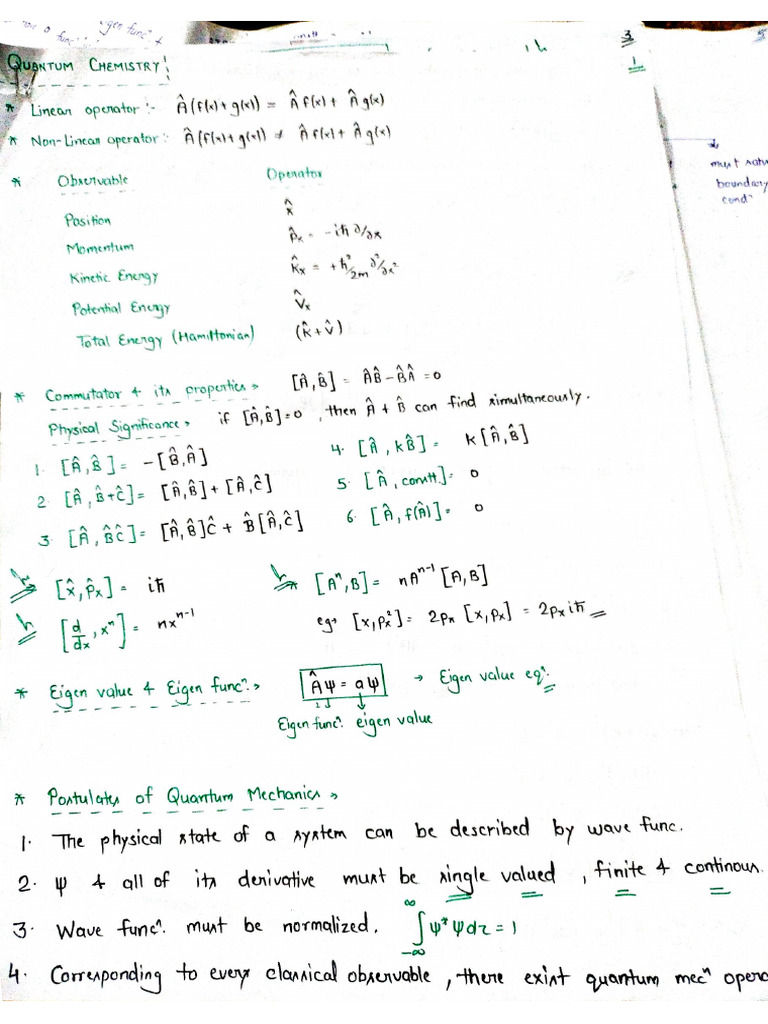 3
1
QUANTUM CHEMISTRY:
* Linear operator:- Â(f(x)+g(x)) = Â f(x) + Â g(x)
* Non-Linear operator:- Â(f(x)+g(x)) ≠ Â f(x) + Â g(x)
must
boundary
cond^n
* Observable Operator
Position x̂
Momentum p̂x = -iħ ∂/∂x
Kinetic Energy K̂x = +ħ²/2m ∂²/∂x²
Potential Energy V̂x
Total Energy (Hamiltonian) (K̂+V̂)
* Commutator & its properties → [Â,B̂] = ÂB̂-B̂Â = 0
Physical Significance → if [Â,B̂]=0, then Â & B̂ can find simultaneously.
1. [Â,B̂] = -[B̂,Â]
2. [Â,B̂+Ĉ] = [Â,B̂]+[Â,Ĉ]
3. [Â,B̂Ĉ] = [Â,B̂]Ĉ + B̂[Â,Ĉ]
4. [Â,kB̂] = k[Â,B̂]
5. [Â,constt.] = 0
6. [Â,f(Â)] = 0
[x̂,p̂x] = iħ
[d/dx, x^n] = nx^n-1
* [A^n,B] = nA^n-1 [A,B]
eg→ [x,px²] = 2px [x,px] = 2px iħ
* Eigen value & Eigen func^n. → Âψ = aψ → Eigen value eq^n.
Eigen func^n. eigen value
* Postulates of Quantum Mechanics →
1. The physical state of a system can be described by wave func.
2. ψ & all of its derivative must be single valued, finite & continous.
3. Wave func^n. must be normalized. ∫_-∞^∞ ψ*ψdτ = 1
4. Corresponding to every classical observable, there exist quantum mec^n opera